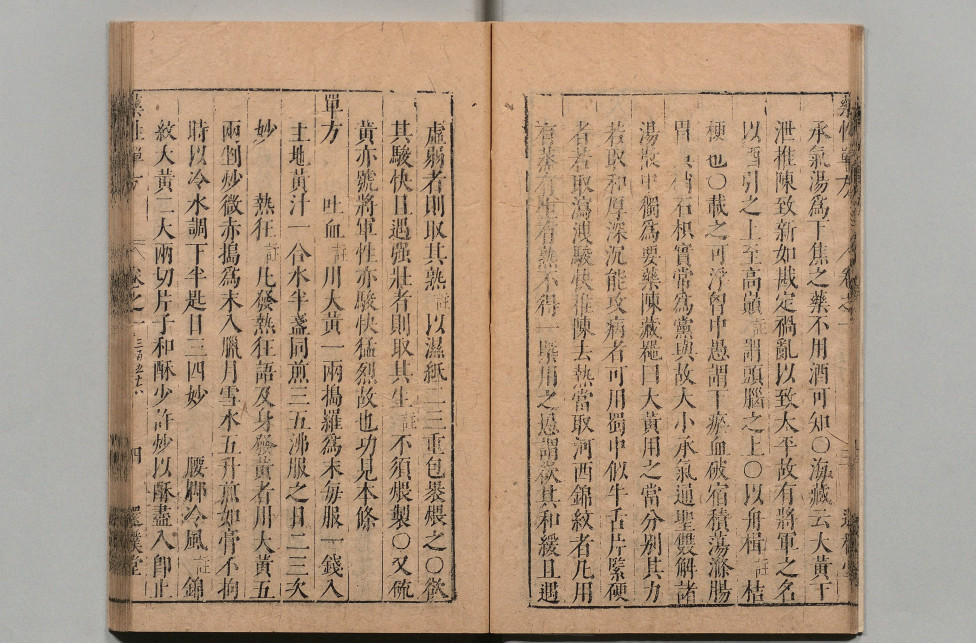 承氣湯爲下焦之藥不用酒可知〇海藏云大黄干
泄推陳致新如戡定禍亂以致太平故有將軍之名
以酒引之上至高巔註謂頭腦之上〇以舟楫註桔
梗也〇載之可浮胷中愚謂下瘀血破宿積蕩滌腸
胃 石枳實常爲黨與故大小承氣通聖雙解諸
湯散中獨爲要藥陳藏噐曰大黄用之當分别其力
若取和厚深沉能攻病者可用蜀中似牛舌片緊硬
者若取瀉洩駿快推陳去熱當取河西錦紋者凡用
有蒸有生有熟不得一槩用之愚謂欲其和緩且遇
虛弱者則取其熟註以濕紙二三重包褁煨之〇欲
其駿快且遇强壯者則取其生註不須煨製〇又硫
黄亦號將軍性亦駿快猛烈故也功見本條
單方 吐血註用大黄一兩搗羅爲末每服一錢入
生地黄汁一合水半盞同煎三五沸服之日二三次
妙 熱狂註凡發熱狂語及身發黄者用大黄五
兩剉炒微赤搗爲末入臘月雪水五升煎如膏不拘
時以冷水調下半匙日三四妙 腰脚冷風註錦
紋大黄二大兩切片子和酥少許炒以酥盡入卽止
藥性單方 卷之一 四 還樸堂